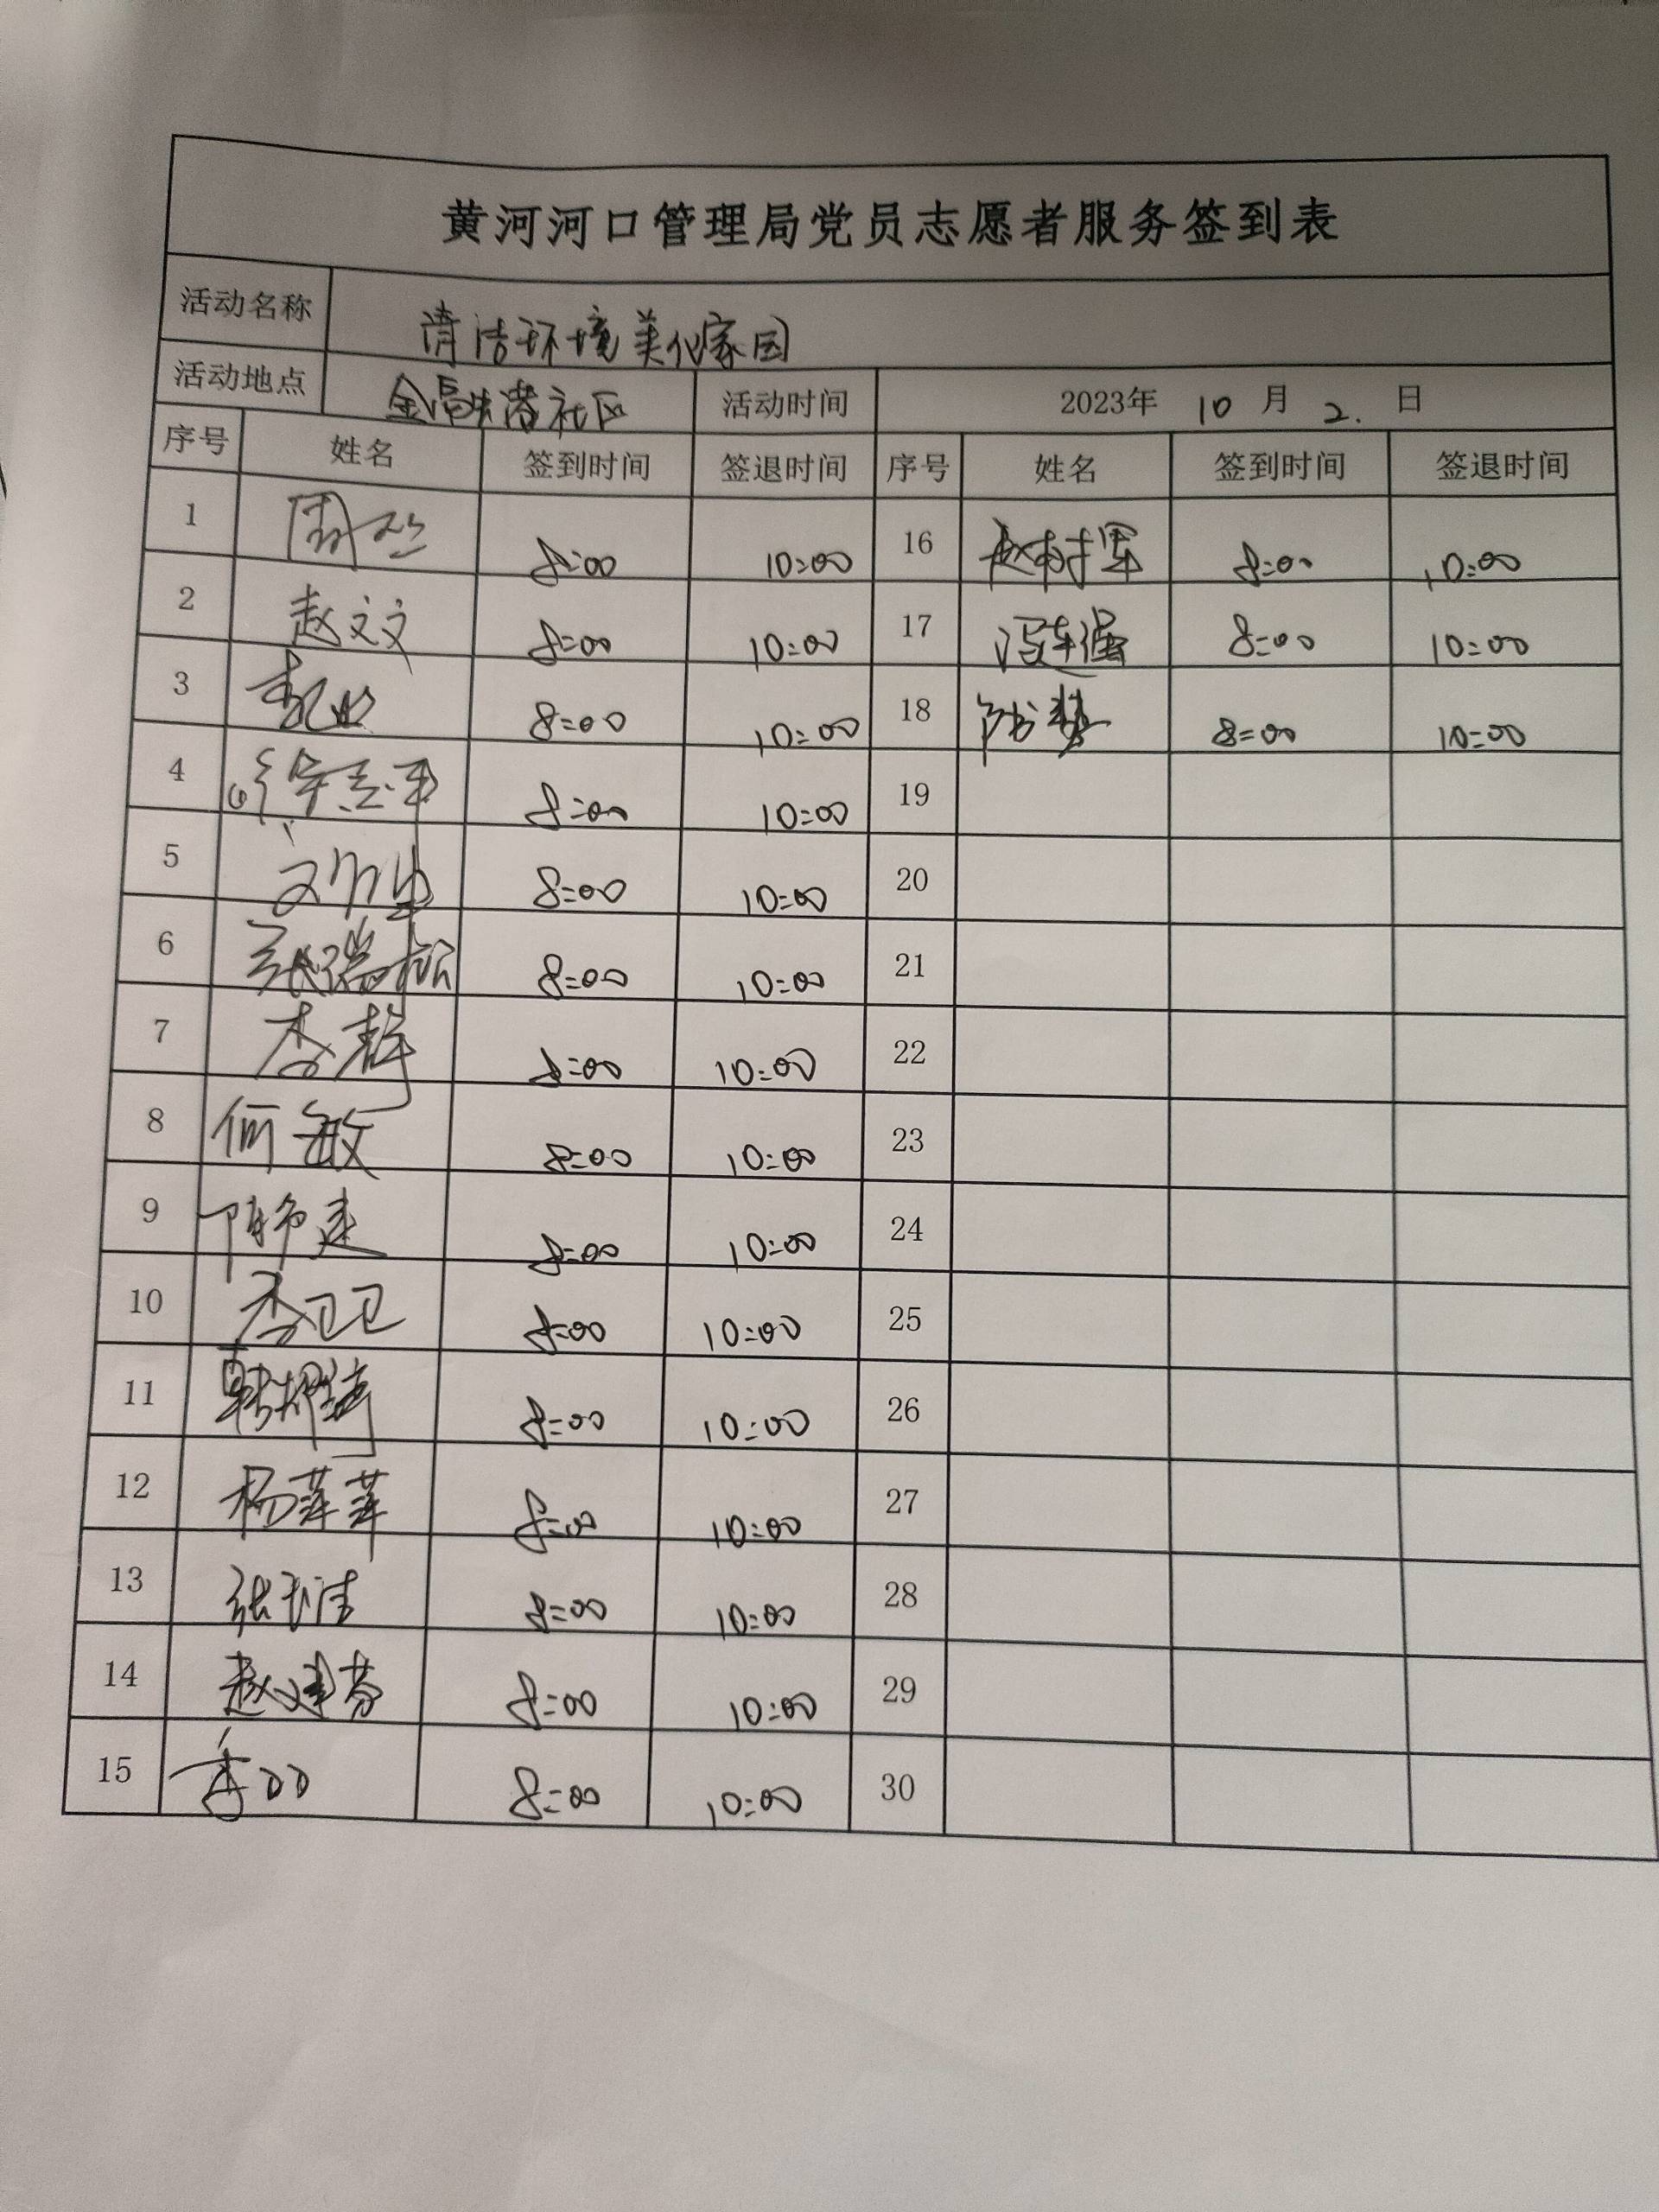 黄河河口管理局党员志愿者服务签到表
活动名称 清洁环境美化家园
活动地点 社区 活动时间 2023年 10 月 2. 日
序号 姓名 签到时间 签退时间 序号 姓名 签到时间 签退时间
1 8:00 10:00 16 8:00 10:00
2 赵文文 8:00 10:00 17 冯连强 8:00 10:00
3 8:00 10:00 18 8:00 10:00
4 8:00 10:00 19
5 8:00 10:00 20
6 张瑞 8:00 10:00 21
7 李静 8:00 10:00 22
8 何敏 8:00 10:00 23
9 8:00 10:00 24
10 李卫卫 8:00 10:00 25
11 8:00 10:00 26
12 杨萍萍 8:00 10:00 27
13 张玉洁 8:00 10:00 28
14 赵建芬 8:00 10:00 29
15 8:00 10:00 30